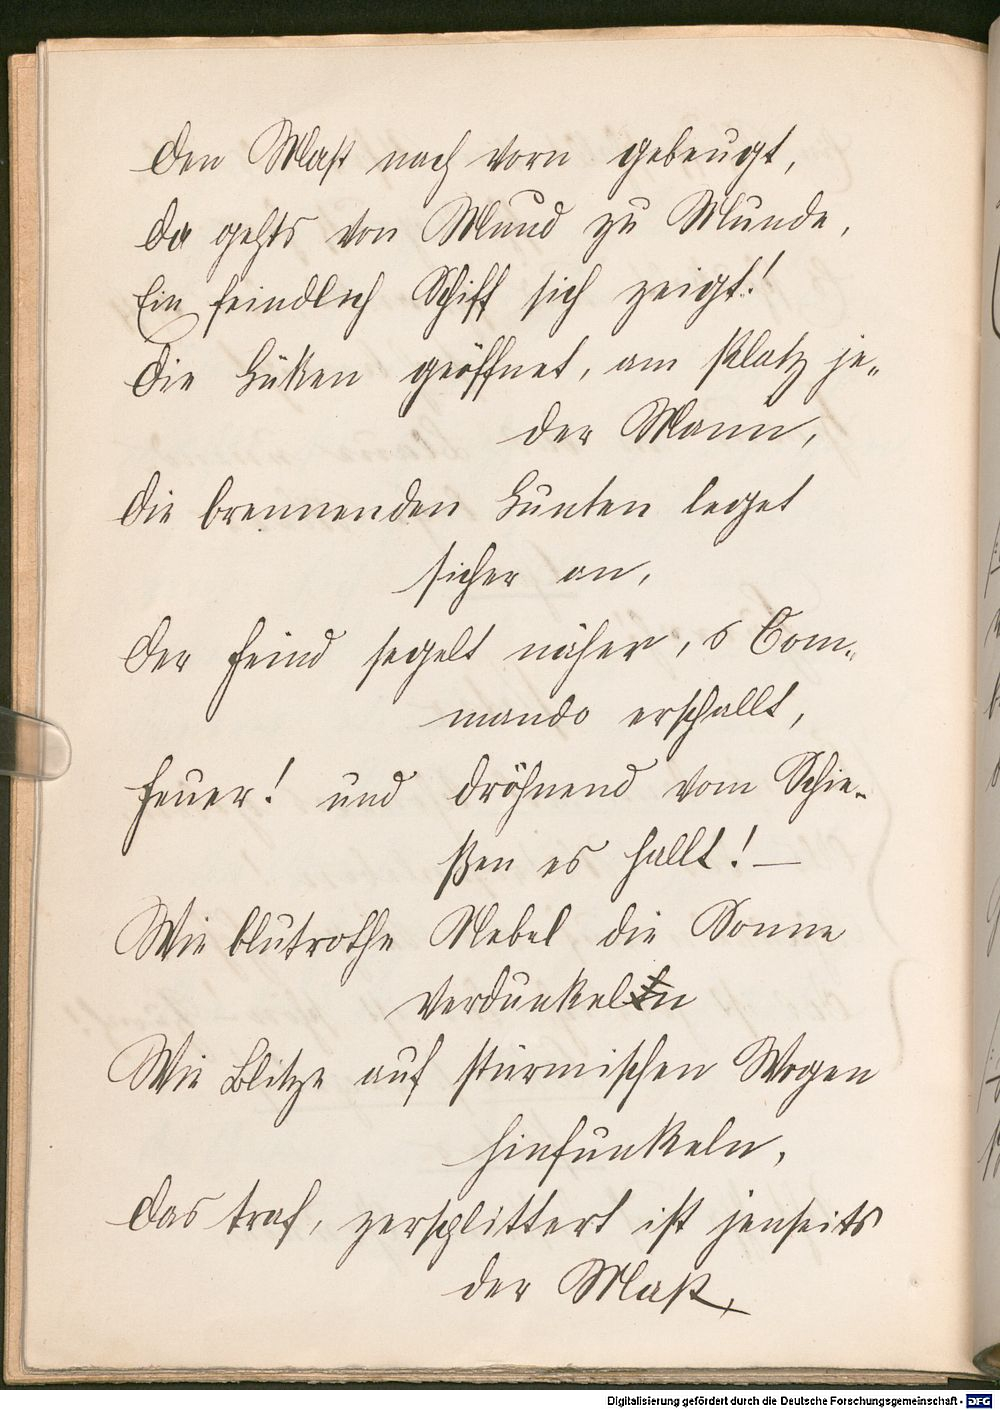 Den Mast nach vorn gebeugt,
Da gehts von Mund zu Munde,
Ein feindlich Schiff sich zeigt!
Die Lüken geöffnet, am Platz je-
der Mann,
Die brennenden Lunten leget
sicher an,
Der Feind segelt näher, s Com-
mando erschallt,
Feuer! und dröhnend vom Schie-
ßen es hallt! —
Wie blutrothe Nebel die Sonne
verdunkeln
Wie Blitze auf stürmischen Wogen
hinfunkeln,
Das traf, zersplittert ist jenseits
der Mast,
Digitalisierung gefördert durch die Deutsche Forschungsgemeinschaft - DFG